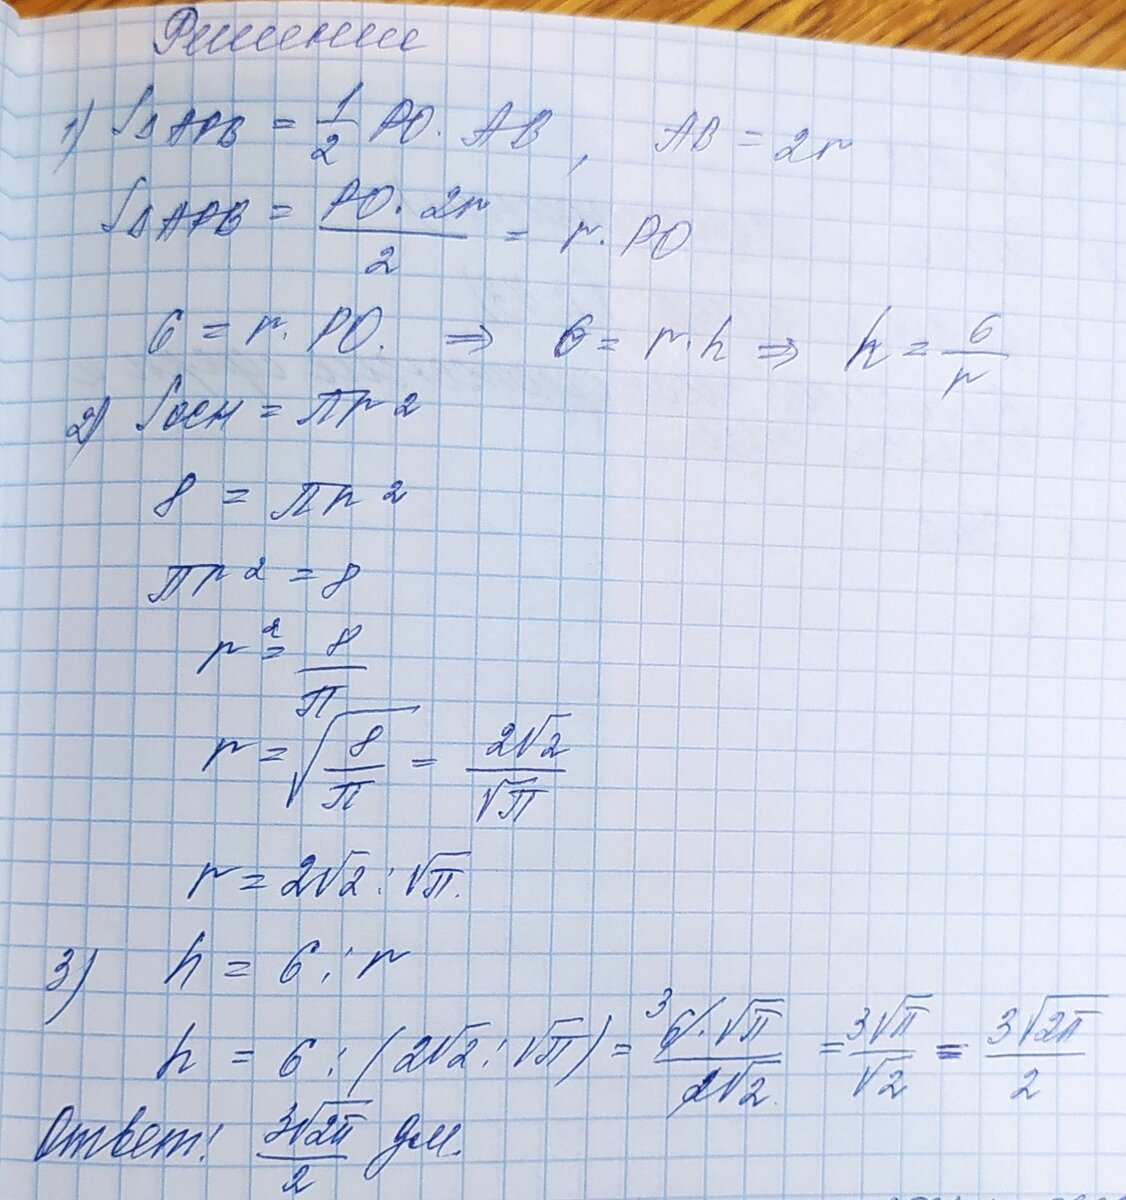 Решение
1) S△APB = 1/2 PO · AB, AB = 2r
S△APB = PO · 2r / 2 = r · PO
6 = r · PO. ⇒ 6 = r · h ⇒ h = 6/r
2) Sосн = πr²
8 = πr²
πr² = 8
r² = 8/π
r = √(8/π) = 2√2/√π
r = 2√2 : √π.
3) h = 6 : r
h = 6 : (2√2 : √π) = ³6 · √π / 2√2. = 3√π/√2 = 3√2π/2
Ответ: 3√2π/2 дм.